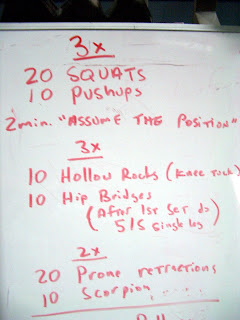 3x
20 SQUATS
10 PUSHUPS
2 min. "ASSUME THE POSITION"
3x
10 Hollow Rocks (Knee tuck)
10 Hip Bridges
(After 1st set do
5/5 single leg)
2x
20 Prone retractions
10 Scorpion.....